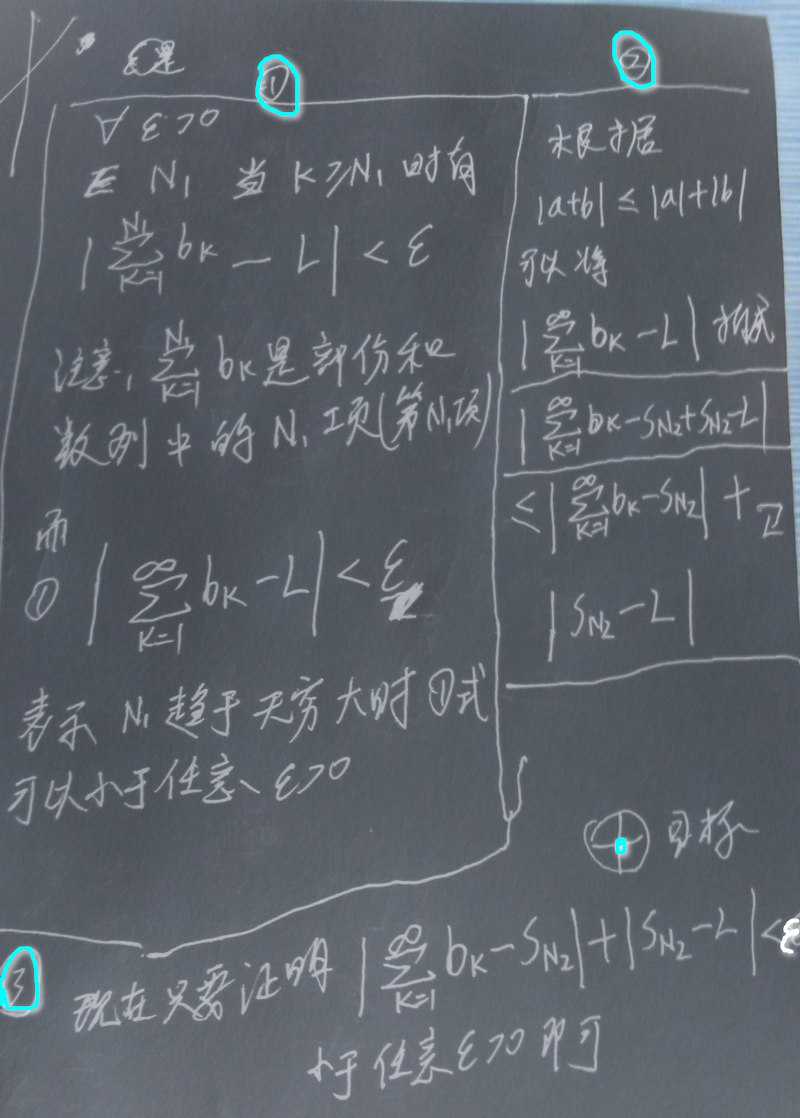 ①
∀ ε>0
∃ N₁ 当 K≥N₁ 时有
|∑_{K=1}^{N₁} b_K - L| < ε
注意, ∑_{K=1}^{N₁} b_K 是部份和
数列中的 N₁ 项(第N₁项)
而
① |∑_{K=1}^{∞} b_K - L| < ε
表示 N₁ 趋于无穷大时 ①式
可以小于任意 ε>0
②
根据
|a+b| ≤ |a|+|b|
可以将
|∑_{K=1}^{∞} b_K - L| 拆成
|∑_{K=1}^{∞} b_K - S_{N₂} + S_{N₂} - L|
≤ |∑_{K=1}^{∞} b_K - S_{N₂}| +
|S_{N₂} - L|
目标
③ 现在只要证明 |∑_{K=1}^{∞} b_K - S_{N₂}| + |S_{N₂} - L| < ε
小于任意 ε>0 即可